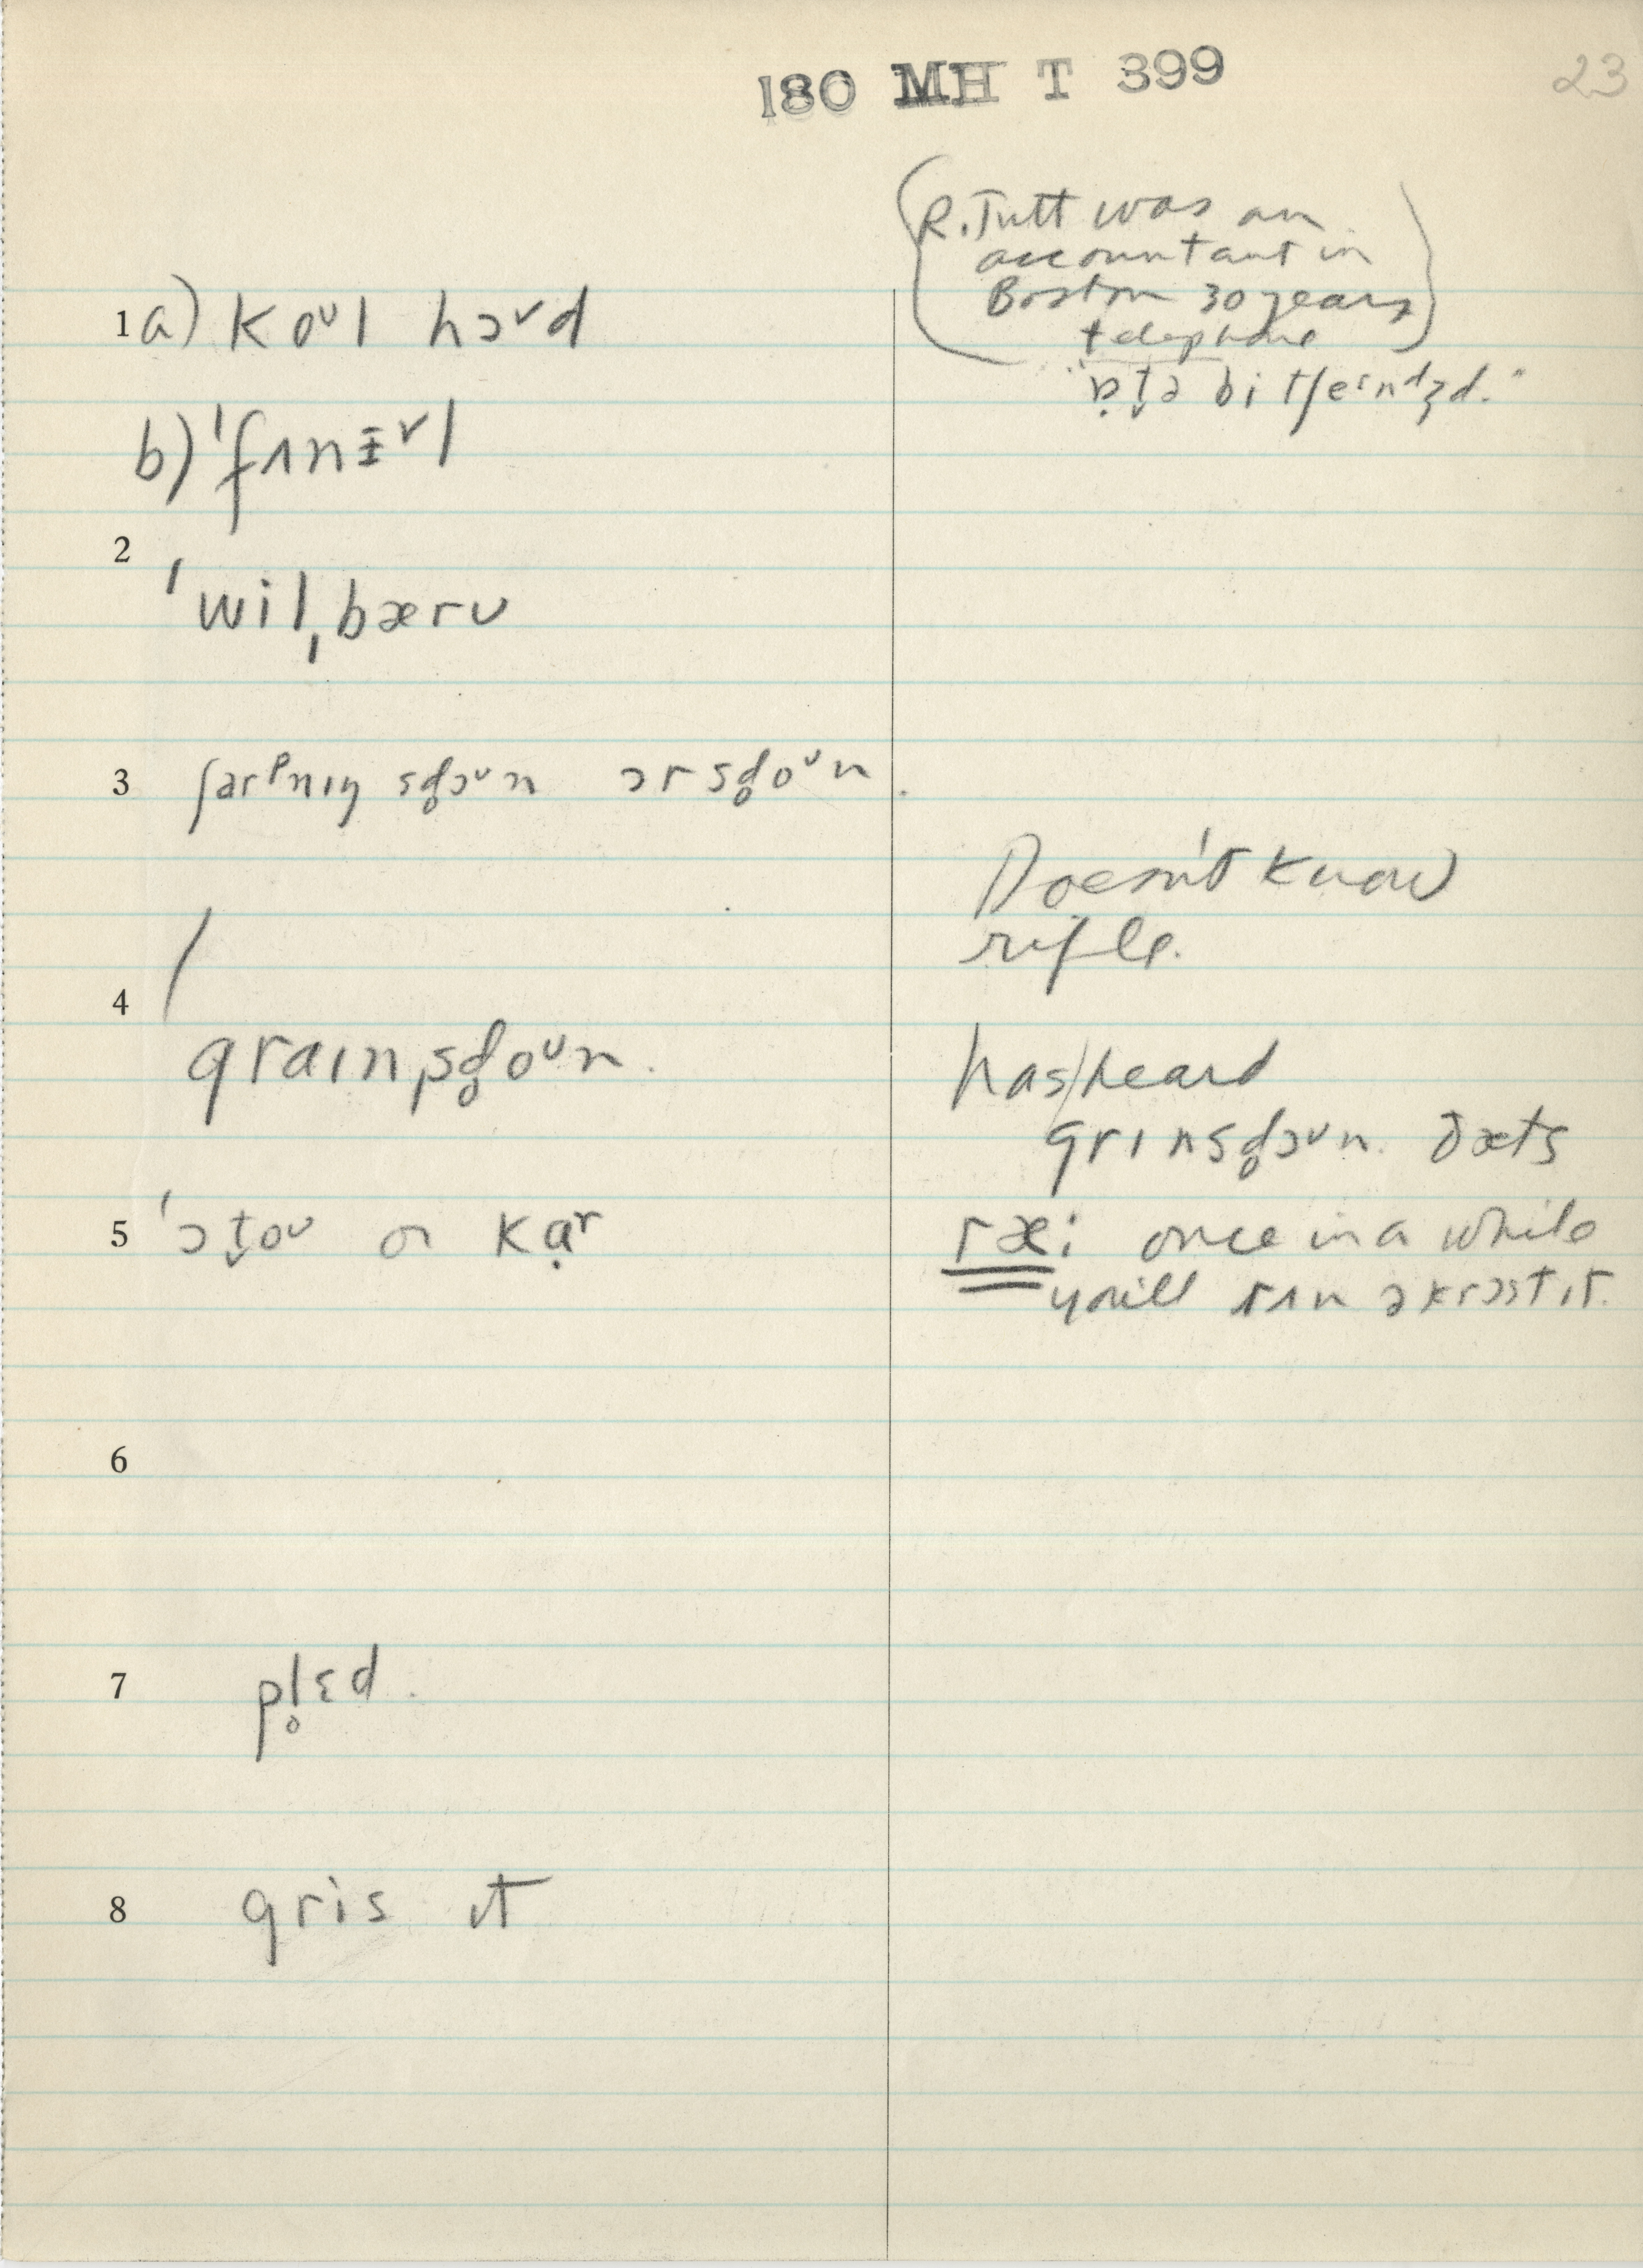 180 MH T 399
23
(R. Tutt was an
accountant in
Boston 30 years)
telephone
"ɒt̬ə bi tʃeɪndʒd."
1 a) koᴜl hɔᴜd
b) ˈfʌnɪᵛl
2
ˈwilˌbærʊ
3 ʃarᵊnɪŋ sd̥ɔᴜn ɔr sd̥oᴜn.
Doesn't know
rifle.
4
ˈgraɪnˌsd̥oᴜn.
has heard
grɪnsd̥ɔᴜn. ðæts
5 ˈɔt̬oᴜ or kạʳ
ræ: once in a while
you'll rʌn əkrɔst ɪt.
6
7 pl̥ɛd.
8 gris ɪt